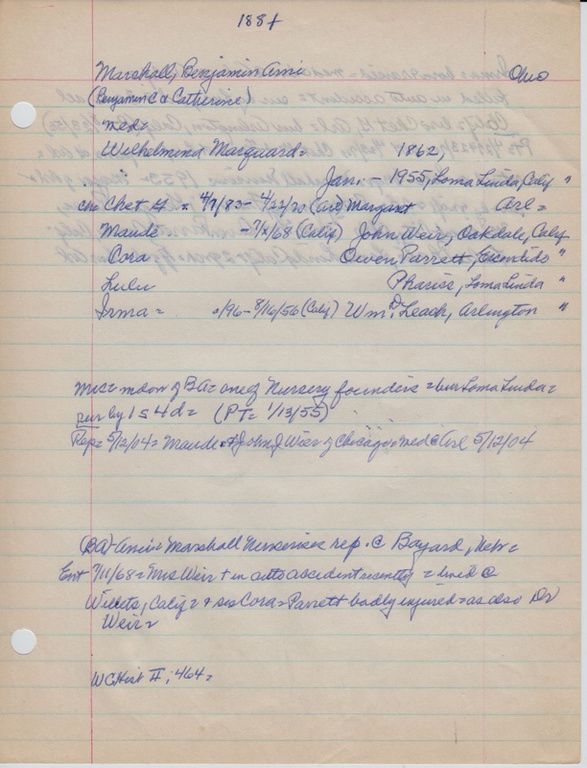 1884
Marshall, Benjamin Ami Ohio
(Benjamin C & Catherine)
med=
Wilhelmina Marquard= 1862,
Jan. - 1955, Loma Linda, Calif "
ch= Chet G = 4/7/83- 4/22/70 (Arl) Margaret Arl=
Maude -7/x/68 (Calif) John Weir, Oakdale, Calif
Cora Owen Parrett, Escondido "
Lulu Phariss, Loma Linda "
Irma= x/96- 8/16/56 (Calif) Wm D. Leach, Arlington "
Mrs= mdow of BA= one of Nursery founders = bur Loma Linda=
sur by 1 s 4 d= (PT= 1/13/55)
Rep= 5/12/04= Maude & John J Wier of Chicago= med @ Arl 5/12/04
(BA)-Ami= Marshall Nurseries rep. @ Bayard, Nebr=
Ent 7/11/68= Mrs Weir + in auto accident recently = lived @
Willits, Calif= + sis Cora= Parrett badly injured= as also Dr
Weir=
WCHist II, 464=